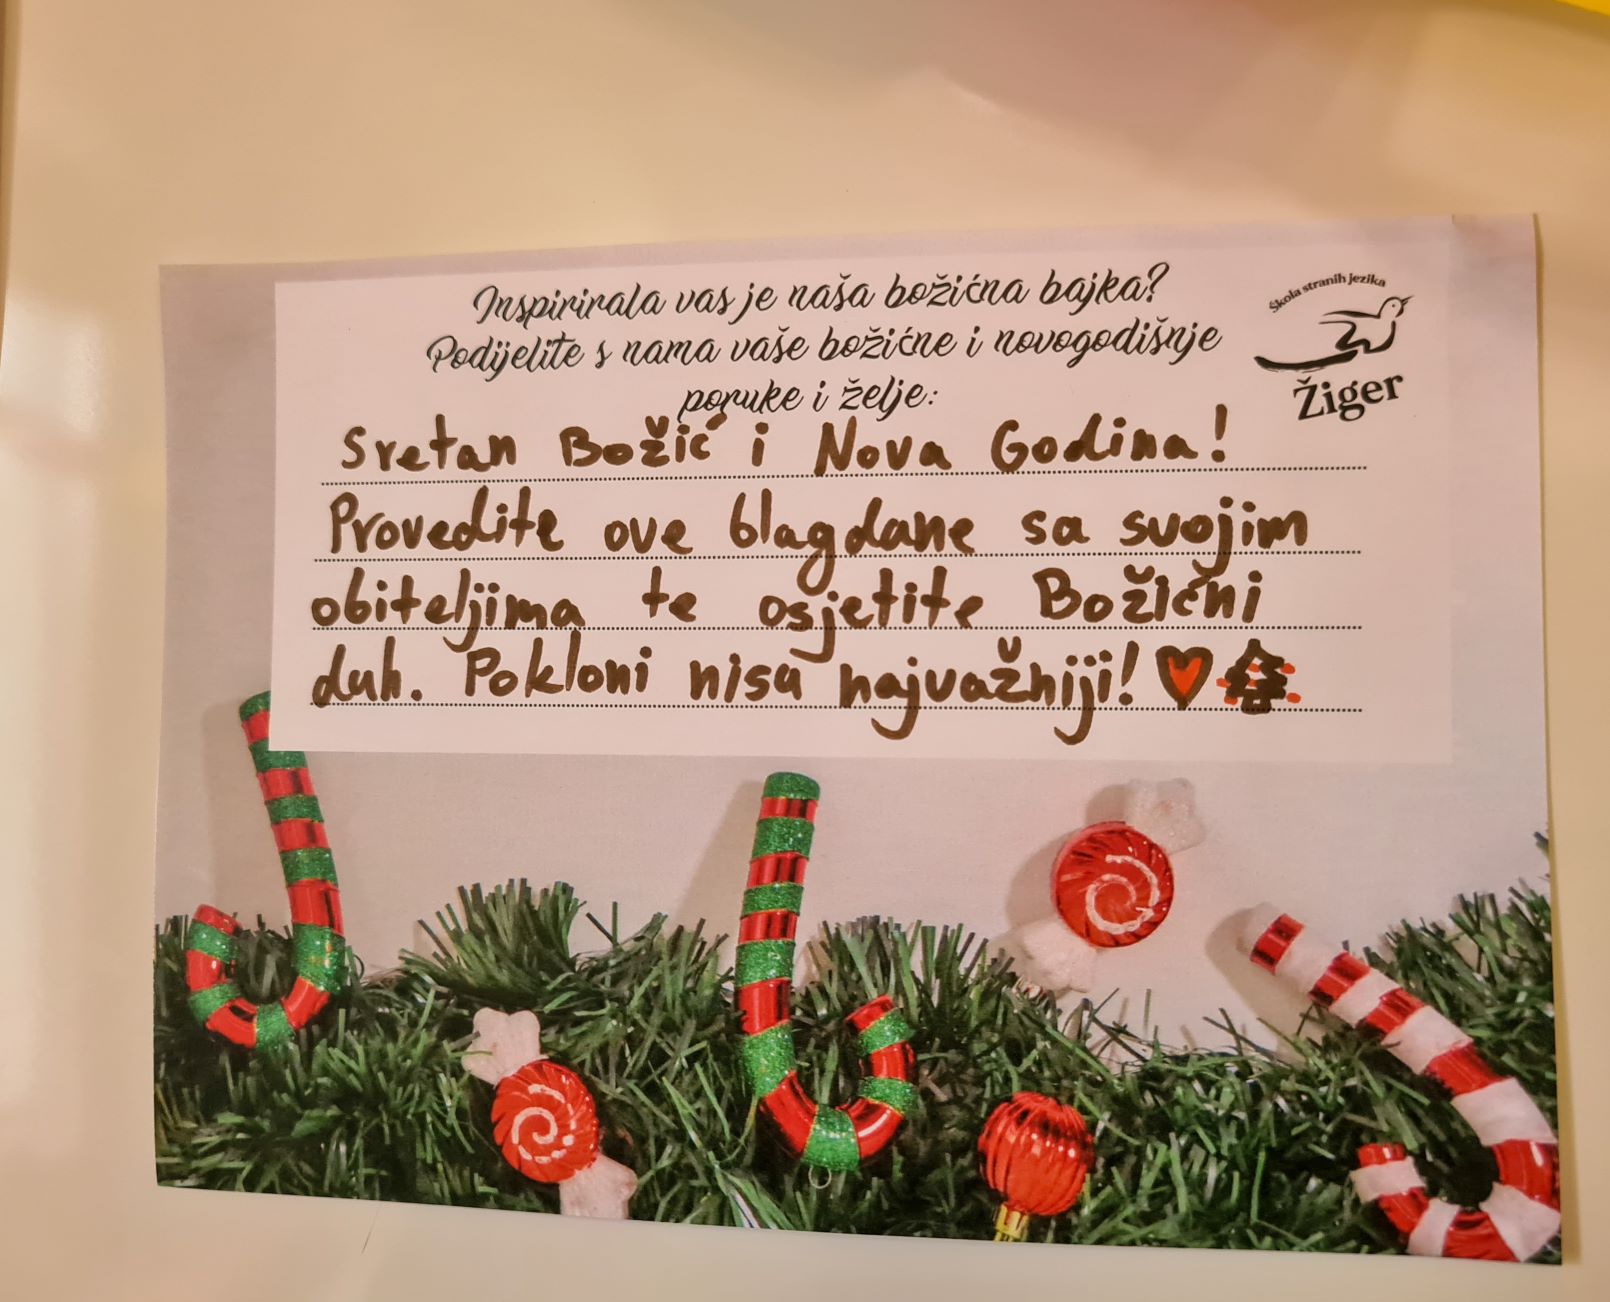 Inspirirala vas je naša božićna bajka?
Podijelite s nama vaše božićne i novogodišnje
poruke i želje:
Škola stranih jezika
Žiger
Sretan Božić i Nova Godina!
Provedite ove blagdane sa svojim
obiteljima te osjetite Božični
duh. Pokloni nisu najvažniji!